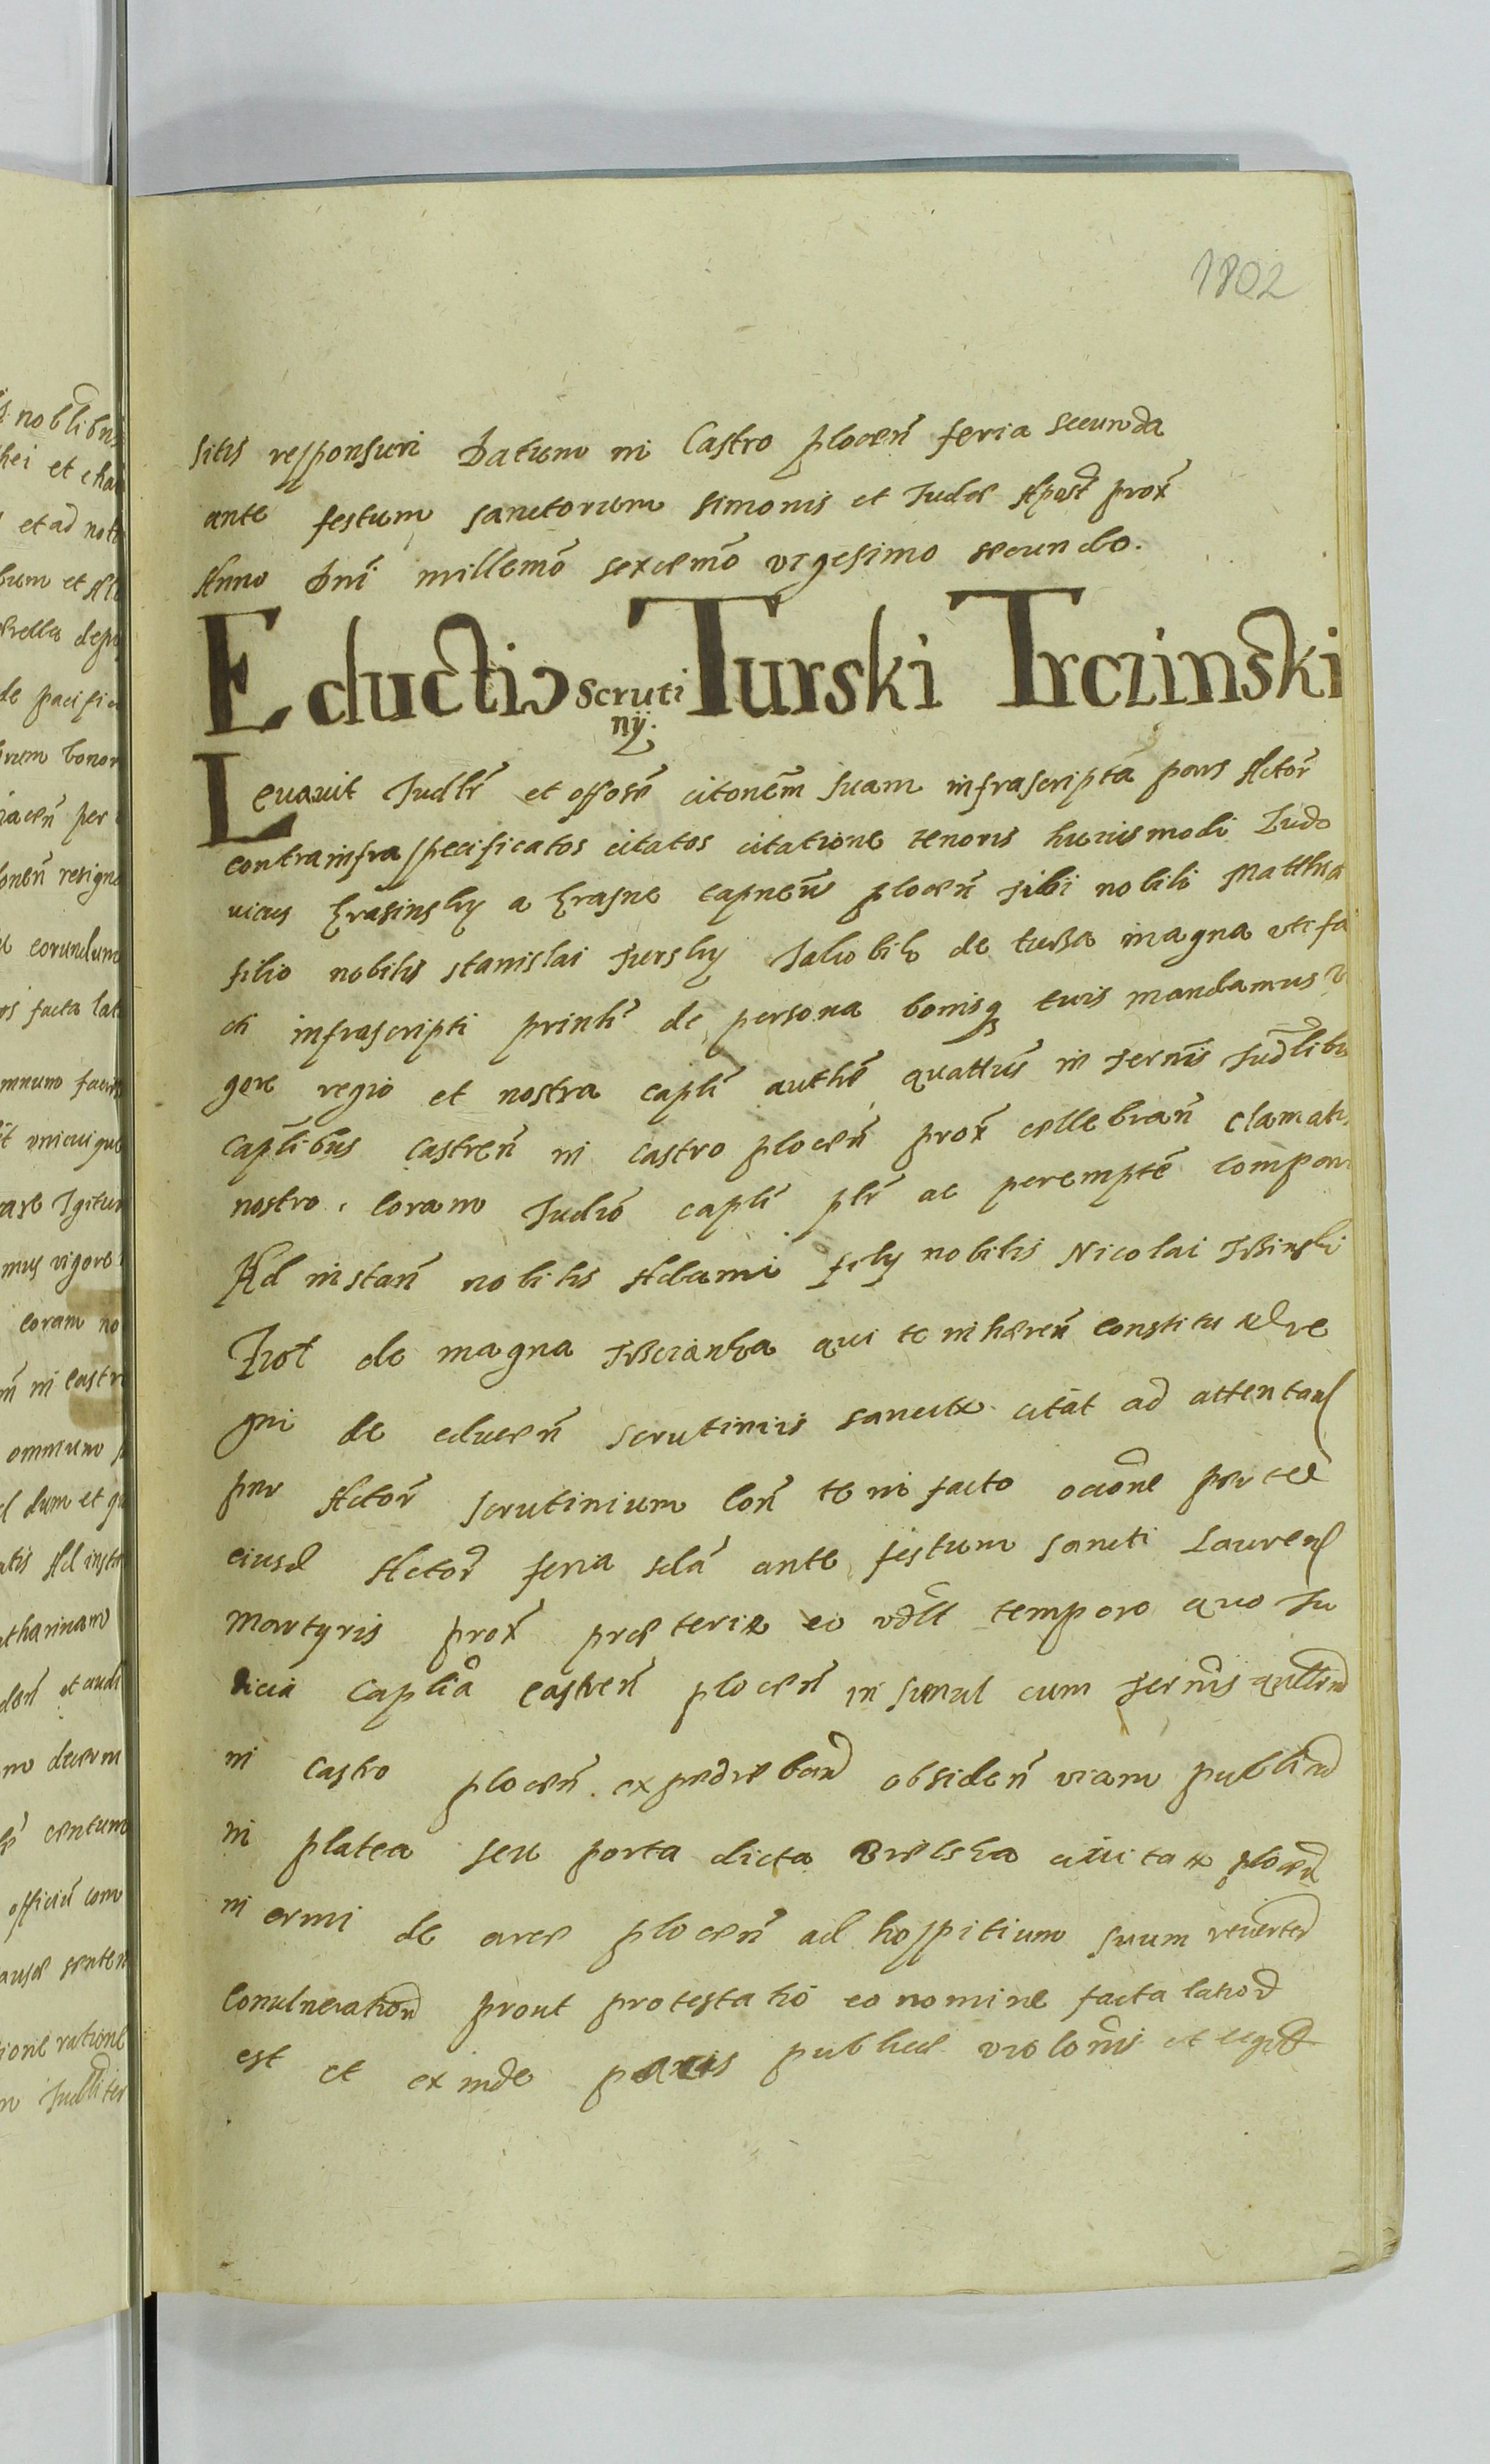 1802
sitis responsuri Datum in Castro plocen̄ feria secunda
ante festum sanctorum Simonis et Judæ Apost prox̄
Anno Dni millemo sexcemo vigesimo secundo.
Eductio scruti Turski Trczinski
nÿ.
Levavit Judlr et offose citonem suam infrascripta pars Actor̄
contra infraspecificatos citatos citatione tenoris huiusmodi Ludo
vicus Krasinsky a Krasne capneus plocen̄ tibi nobili Matthia
filio nobilis Stanislai Tursky Jakobik de turza magna uti fa
cti infrascripti prinli de persona bonisq tuis mandamus vi
gore regio et nostra capli authe quattus in termis Judlibus
caplibus castren̄ in castro plocen̄ prox̄ cellebran̄ clamatis
nostro, coram Judio capli plr ac perempte compar
Ad instan̄ nobilis Adami fily nobilis Nicolai Trzinski
Kot de magna Trzcianka qui te inhæren̄ constitu Re
gni de educen̄ scrutiniis sancitæ citat ad attentan
per Actor̄ scrutinium con̄ te in facto ocione per te
eiusd Actor̄ feria scda ante festum sancti Lauren
Martyris prox̄ præterit eo vdlt tempore quo Ju
dicia caplia castren̄ plocen̄ insimul cum termis
in Castro plocen̄ expedieban obsiden̄ viam publicam
in platea seu porta dicta Bielska civitatis plocen̄
in ermi de arce plocen̄ ad hospitium suum reverten
convulneration prout protestatio eo nomine facta lation
est et exinde pacis publicæ violonis et